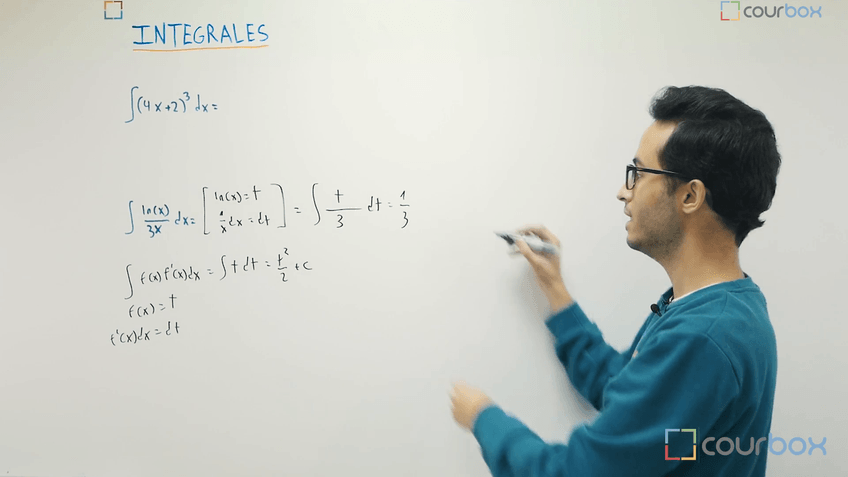 courbox
INTEGRALES
∫(4x+2)³ dx=
∫ ln(x)/3x dx= [ln(x)=t 1/x dx=dt] = ∫ t/3 dt = 1/3
∫ f(x) f'(x)dx = ∫ t dt = t²/2 + c
f(x) = t
f'(x)dx = dt
courbox